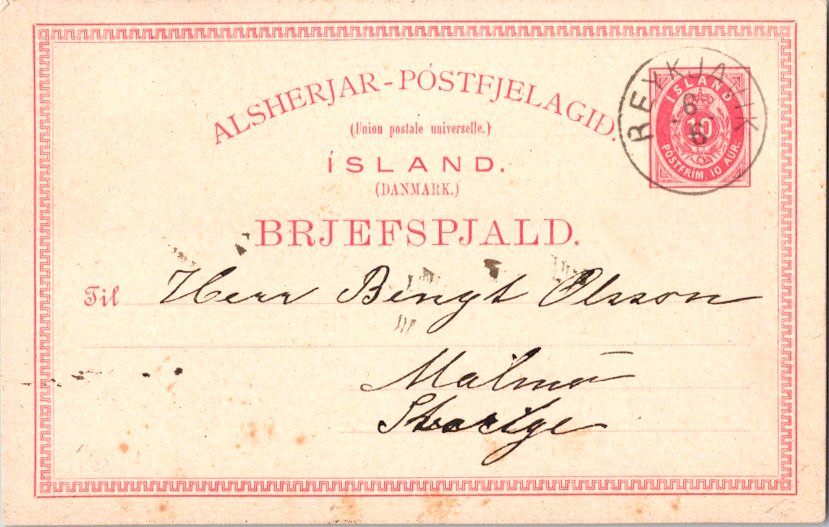 ALSHERJAR-PÓSTFJELAGID.
(Union postale universelle.)
ÍSLAND.
(DANMARK.)
BRJEFSPJALD.
REYKJAVIK
6
6
ÍSLAND
10
POSTFRIM. 10 AUR.
Til Herr Bengt Olsson
Malmö
Sverige